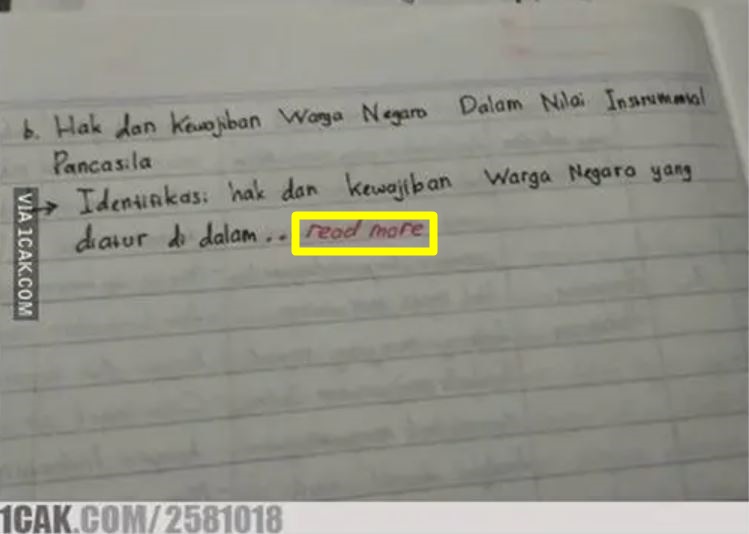 b. Hak dan Kewajiban Warga Negara Dalam Nilai Instrumental
Pancasila
→ Identifikasi hak dan kewajiban Warga Negara yang
diatur di dalam.. read more
VIA 1CAK.COM
1CAK.COM/2581018